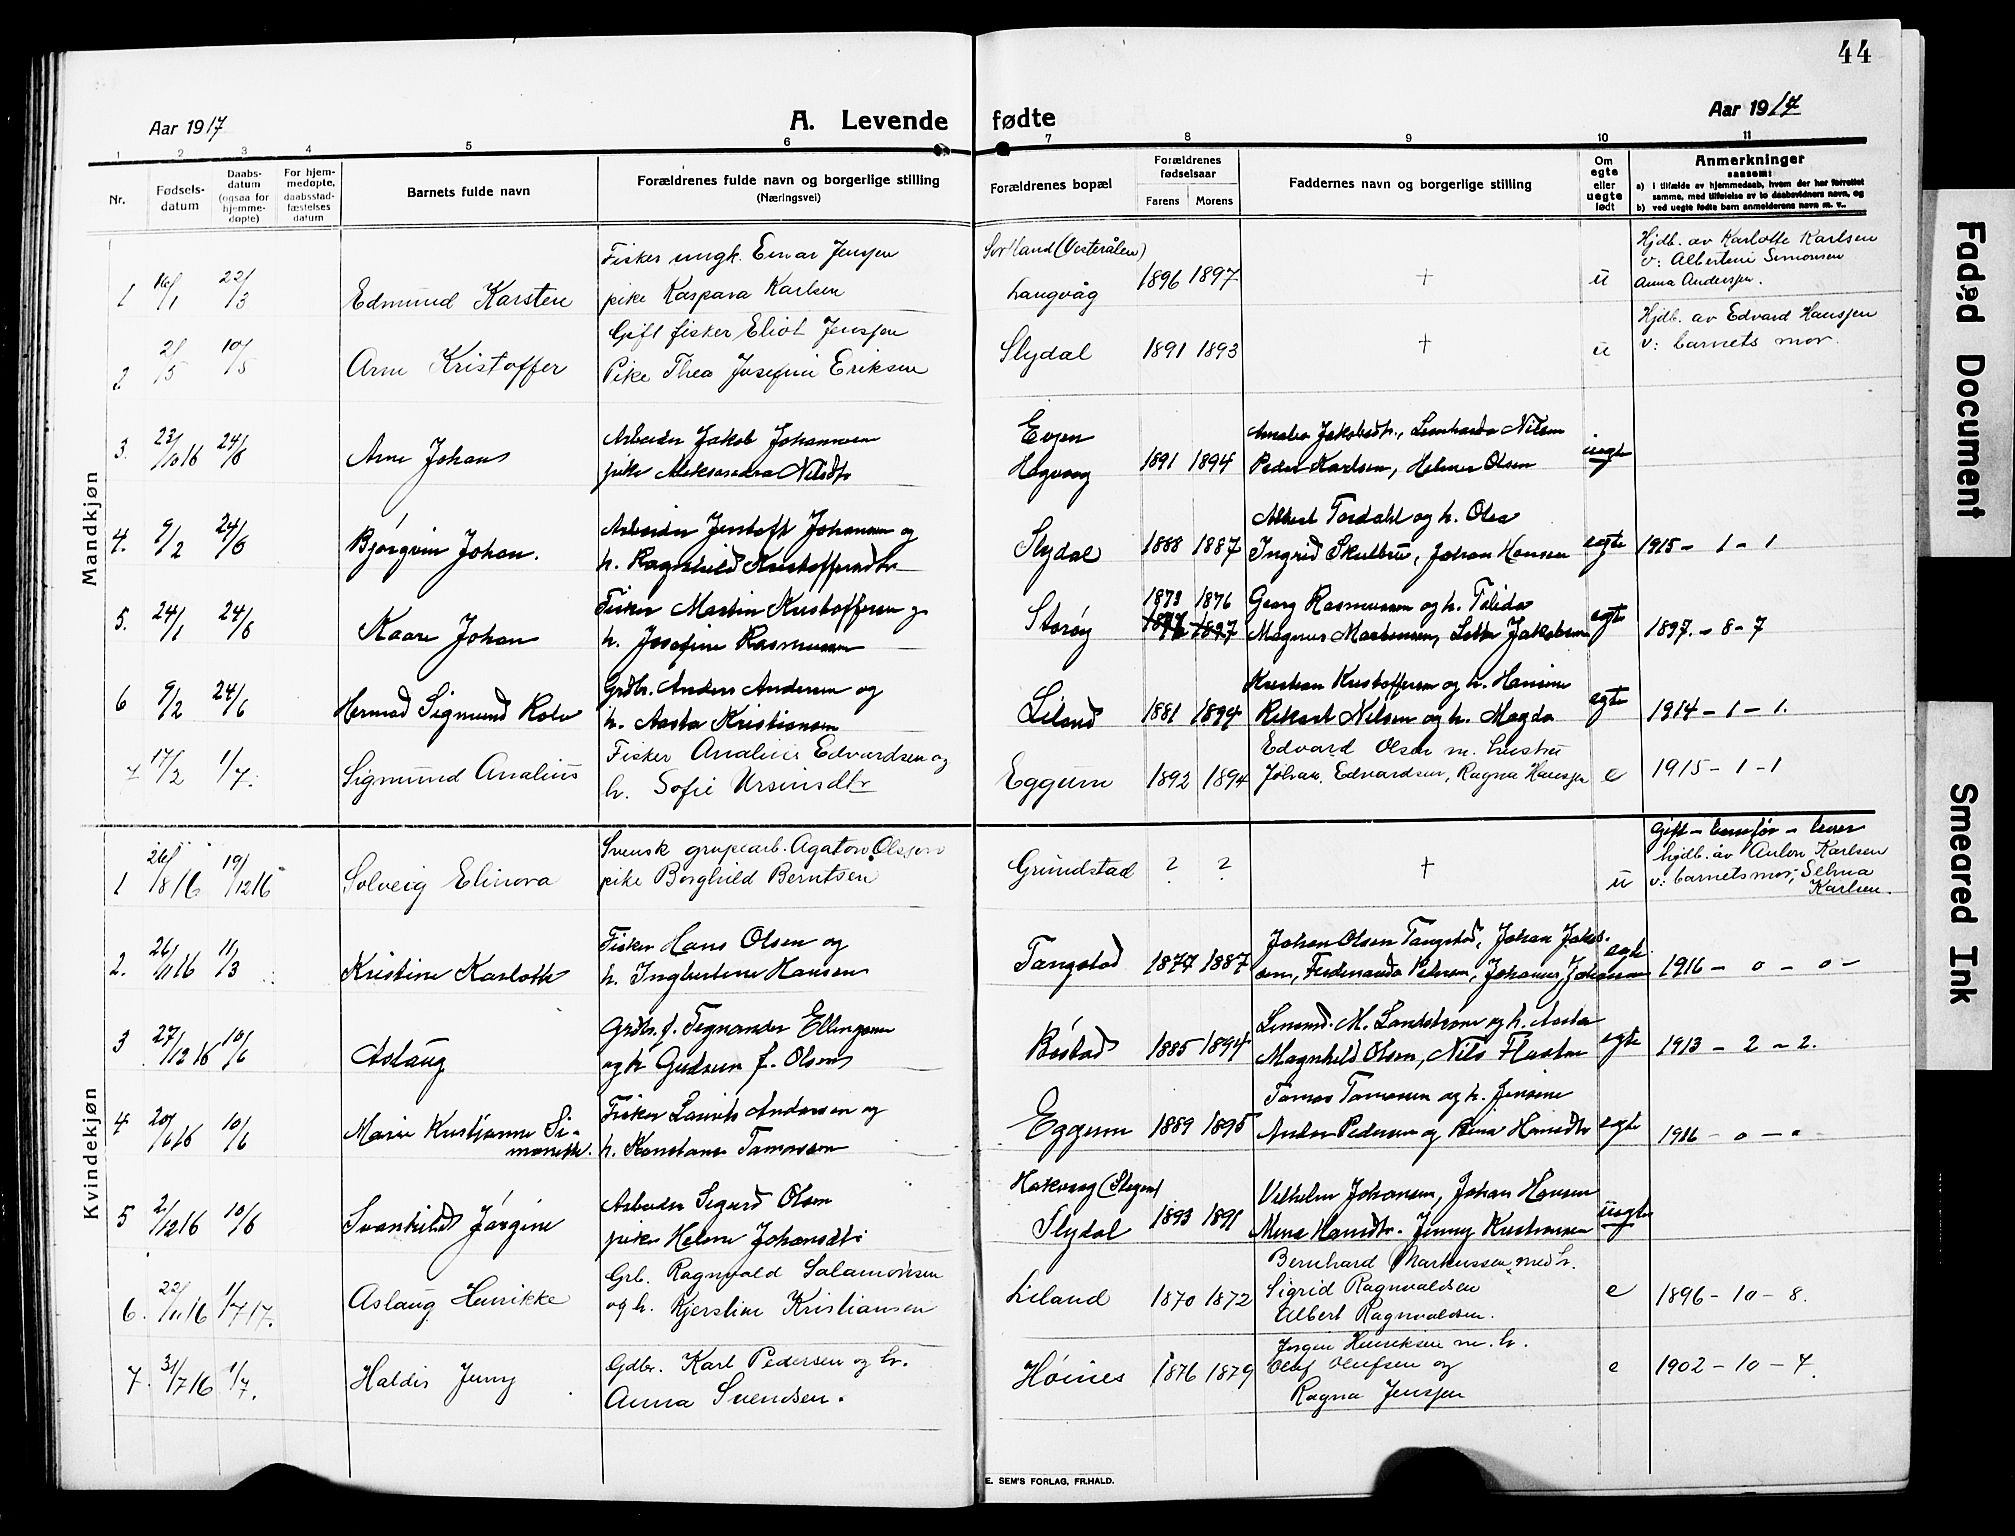 44
Aar 1917
A. Levende fødte
Aar 1917
1 2 3 4 5 6 7 8 9 10 11
Nr.
Fødsels-
datum
Daabs-
datum
(ogsaa for
hjemme-
døpte)
For hjem-
medøpte,
daabsstad-
fæstelses
datum
Barnets fulde navn
Forældrenes fulde navn og borgerlige stilling
(Næringsvei)
Forældrenes bopæl
Forældrenes
fødselsaar
Farens Morens
Faddernes navn og borgerlige stilling
Om
egte
eller
uegte
født
Anmerkninger
saasom:
a) i tilfælde av hjemmedaab, hvem der har forrettet
samme, med tilføielse av to daabsvidners navn, og
b) ved uegte fødte barn anmelderens navn m. v.
Mandkjøn
Fisker ungk. Einar Jensen Sortland (Vesterålen) Hjdb. av Karlotte Karlsen
v: Albertine Simonsen
1 16/1 22/3 Edmund Karsten pike Kaspara Karlsen Langvåg 1896 1897 + u Anna Anderssen.
Gift fisker Eliot Jenssen Hjdb. av Edvard Hanssen
2 2/5 10/5 Arne Kristoffer Pike Thea Josefine Eriksen Slydal 1891 1893 + u v: barnets mor.
Arbeider Jakob Johannesen Evjen Amalia Jakobsdtr., Leonharda Nilsen
3. 23/10 16 24/6 Arne Johans pike Aleksandra Nilsdtr Hagvaag 1891 1894 Peder Karlsen, Helmer Olsen uegte
Arbeider Jentoft Johansen og Albert Tordahl og h. Olea
4. 9/2 24/6 Bjørgvin Johan. h. Ragnhild Kristoffersdtr Slydal 1888 1887 Ingrid Skulbru, Johan Hansen egte 1915 - 1 - 1
Fisker Martin Kristoffersen og 1873 1876 Georg Rasmussen og h. Talida
5. 24/1 24/6 Kaare Johan h. Josefine Rasmussen Storøy 1897 Magnus Martinsen, Lotte Jakobsen egte 1897. - 8 - 7
Grdbr. Anders Andersen og Kristian Kristoffersen og h. Hansine
6 9/2 24/6 Hermod Sigmund Rolv h. Aasta Kristiansen Liland 1881 1894 Rikart Nilsen og h. Magda egte 1914 - 1 - 1.
Fisker Analius Edvardsen og Edvard Olsen m. hustru
7 17/2 1/7. Sigmund Analius h. Sofie Ursinsdtr Eggum 1892 1894 Johan Edvardsen, Ragna Hanssen e 1915 - 1 - 1
Kvindekjøn
Svensk grupearb. Agaton Olsson Gift - barnefar - lever
hjdb. av Anton Karlsen
1 26/8 16 19/12 16 Solveig Elinora pike Borghild Berntsen Grundstad ? ? + u v: barnets mor, Selma
Karlsen.
Fisker Hans Olsen og Johan Olsen Tangstad, Johan Jakob-
2. 26/11 16 11/3 Kristine Karlotte h. Ingbertine Hansen Tangstad 1877 1887 sen, Ferdinanda Petersen, Johannes Johansen egte 1916 - 0 - 0 -
Grdbr. f. Tegnander Ellingsen Lensmd. M. Landstrøm og h. Aasta
3 27/12 16 10/6 Aslaug og h Gudrun f. Olsen Bøstad 1885 1894 Magnhild Olsen, Nils Flaaten egte 1913 - 2 - 2.
Fisker Laurits Andersen og Tomas Tomassen og h. Jensine
4 20/6 16 10/6 Marie Kristjanne Si- h. Konstanse Tomassen Eggum 1889 1895 Anton Pedersen og Bina Hansdtr egte 1916 - 0 - 0
monette.
Arbeider Sigurd Olsen Hakvaag (Steigen) Vilhelm Johansen, Johan Hansen
5 2/12 16 10/6 Svanhild Jørgine pike Helene Johansdtr Slydal 1893 1891 Mena Hansdtr. Jenny Kristiansen uegte
Grb. Ragnvald Salamonsen Bernhard Markussen med h.
6. 22/11 16 1/7 17. Aslaug Henrikke og h. Kjerstine Kristiansen Liland 1870 1872 Sigrid Ragnvaldsen e 1896 - 10 - 8.
Albert Ragnvaldsen.
Gdbr. Karl Pedersen og h. Jørgen Henriksen m. h.
7. 31/7 16 1/7. Haldis Jenny Anna Svendsen. Høines 1876 1879 Olaf Olufsen og e 1902 - 10 - 7.
Ragna Jenssen
E. SEM'S FORLAG, FR.HALD.
Faded Document
Smeared Ink